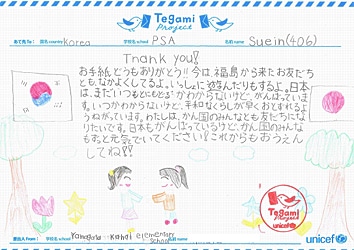 Tegami
Project
あて先 To: 国名 country Korea 学校名 school PSA 名前 name Suein(406)
Thank you!!
お手紙どうもありがとう!!今は、福島から来たお友だち
とも、なかよくしてるよ。いっしょに遊んだりもするよ。日本
は、まだいつもとにもどるかわからないけど、がんばっていま
す。いつかわからないけど、平和なくらしが早くおとずれるよ
うねがっています。わたしは、かん国のみんなとも友だちにな
りたいです。日本もがんばっているけど、かん国のみんな
もずっと元気でいてください!これからもおうえん
しててね!!
Tegami
Project
unicef
差出人 From: 学校名 school Kandi elementary school 名前 name
unicef